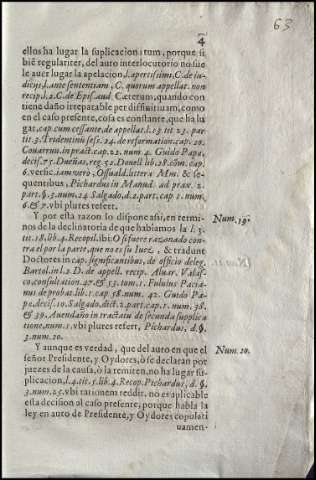 63
4
ellos ha lugar la suplicacion itum, porque si
biẽ regulariter, del auto interlocutorio no sue
le auer lugar la apelacion, l. apertissimi, C. de iu-
dicijs, l. ante sententiam, C. quorum appellat. non
recip. l. 2. C. de Epis. aud. Cæterum, quando con
tiene daño irreparable per diffinitiuam, como
en el caso presente, cosa es constante, que ha lu
gar, cap. cum cessante, de appellat. l. 13. tit. 23. par-
tit. 3. Tridentinũ sess. 24. de reformation. cap. 20.
Couarruu. in pract. cap. 23. num. 4. Guido Papæ,
decis. 75. Dueñas, reg. 52. Donell. lib. 28. cõm. cap.
6. versic. iam verò, Osuuald. littera Mm. & se-
quentibus, Pichardus in Manud. ad prax. 2.
part. §. 3. num. 24. Salgado, d. 2. part. cap. 1. num.
6. & 7. vbi plures refert.
Y por esta razon lo dispone assi, en termi-
nos de la declinatoria de que hablamos la l. 5.
tit. 18. lib. 4. Recopil. ibi: O si fuere razonado con-
tra el por la parte, que no es su Iuez, & tradunt
Doctores in cap. significantibus, de officio deleg.
Bartol. in l. 2. D. de appell. recip. Aluar. Valas-
co, consultation. 27. & 53. tom. 1. Fuluius Pacia-
nus de probat. lib. 1. cap. 58. num. 42. Guido Pa-
pæ, decis. 10. Salgado, dict. 2. part. cap. 1. num. 38.
& 39. Auendaño in tractatu de secunda supplica
tione, num. 1. vbi plures refert, Pichardus, d. §.
3. num. 20.
Num. 19.
Y aunque es verdad, que del auto en que el
señor Presidente, y Oydores, ò se declaran por
juezes de la causa, ò la remiten, no ha lugar su
plicacion, l. 4. tit. 5. lib. 4. Recop. Pichardus, d. §.
3. num. 25. vbi rationem reddit, no es aplicable
esta decision al caso presente; porque habla la
ley en auto de Presidente, y Oydores copulati
uamen-
Num. 20.